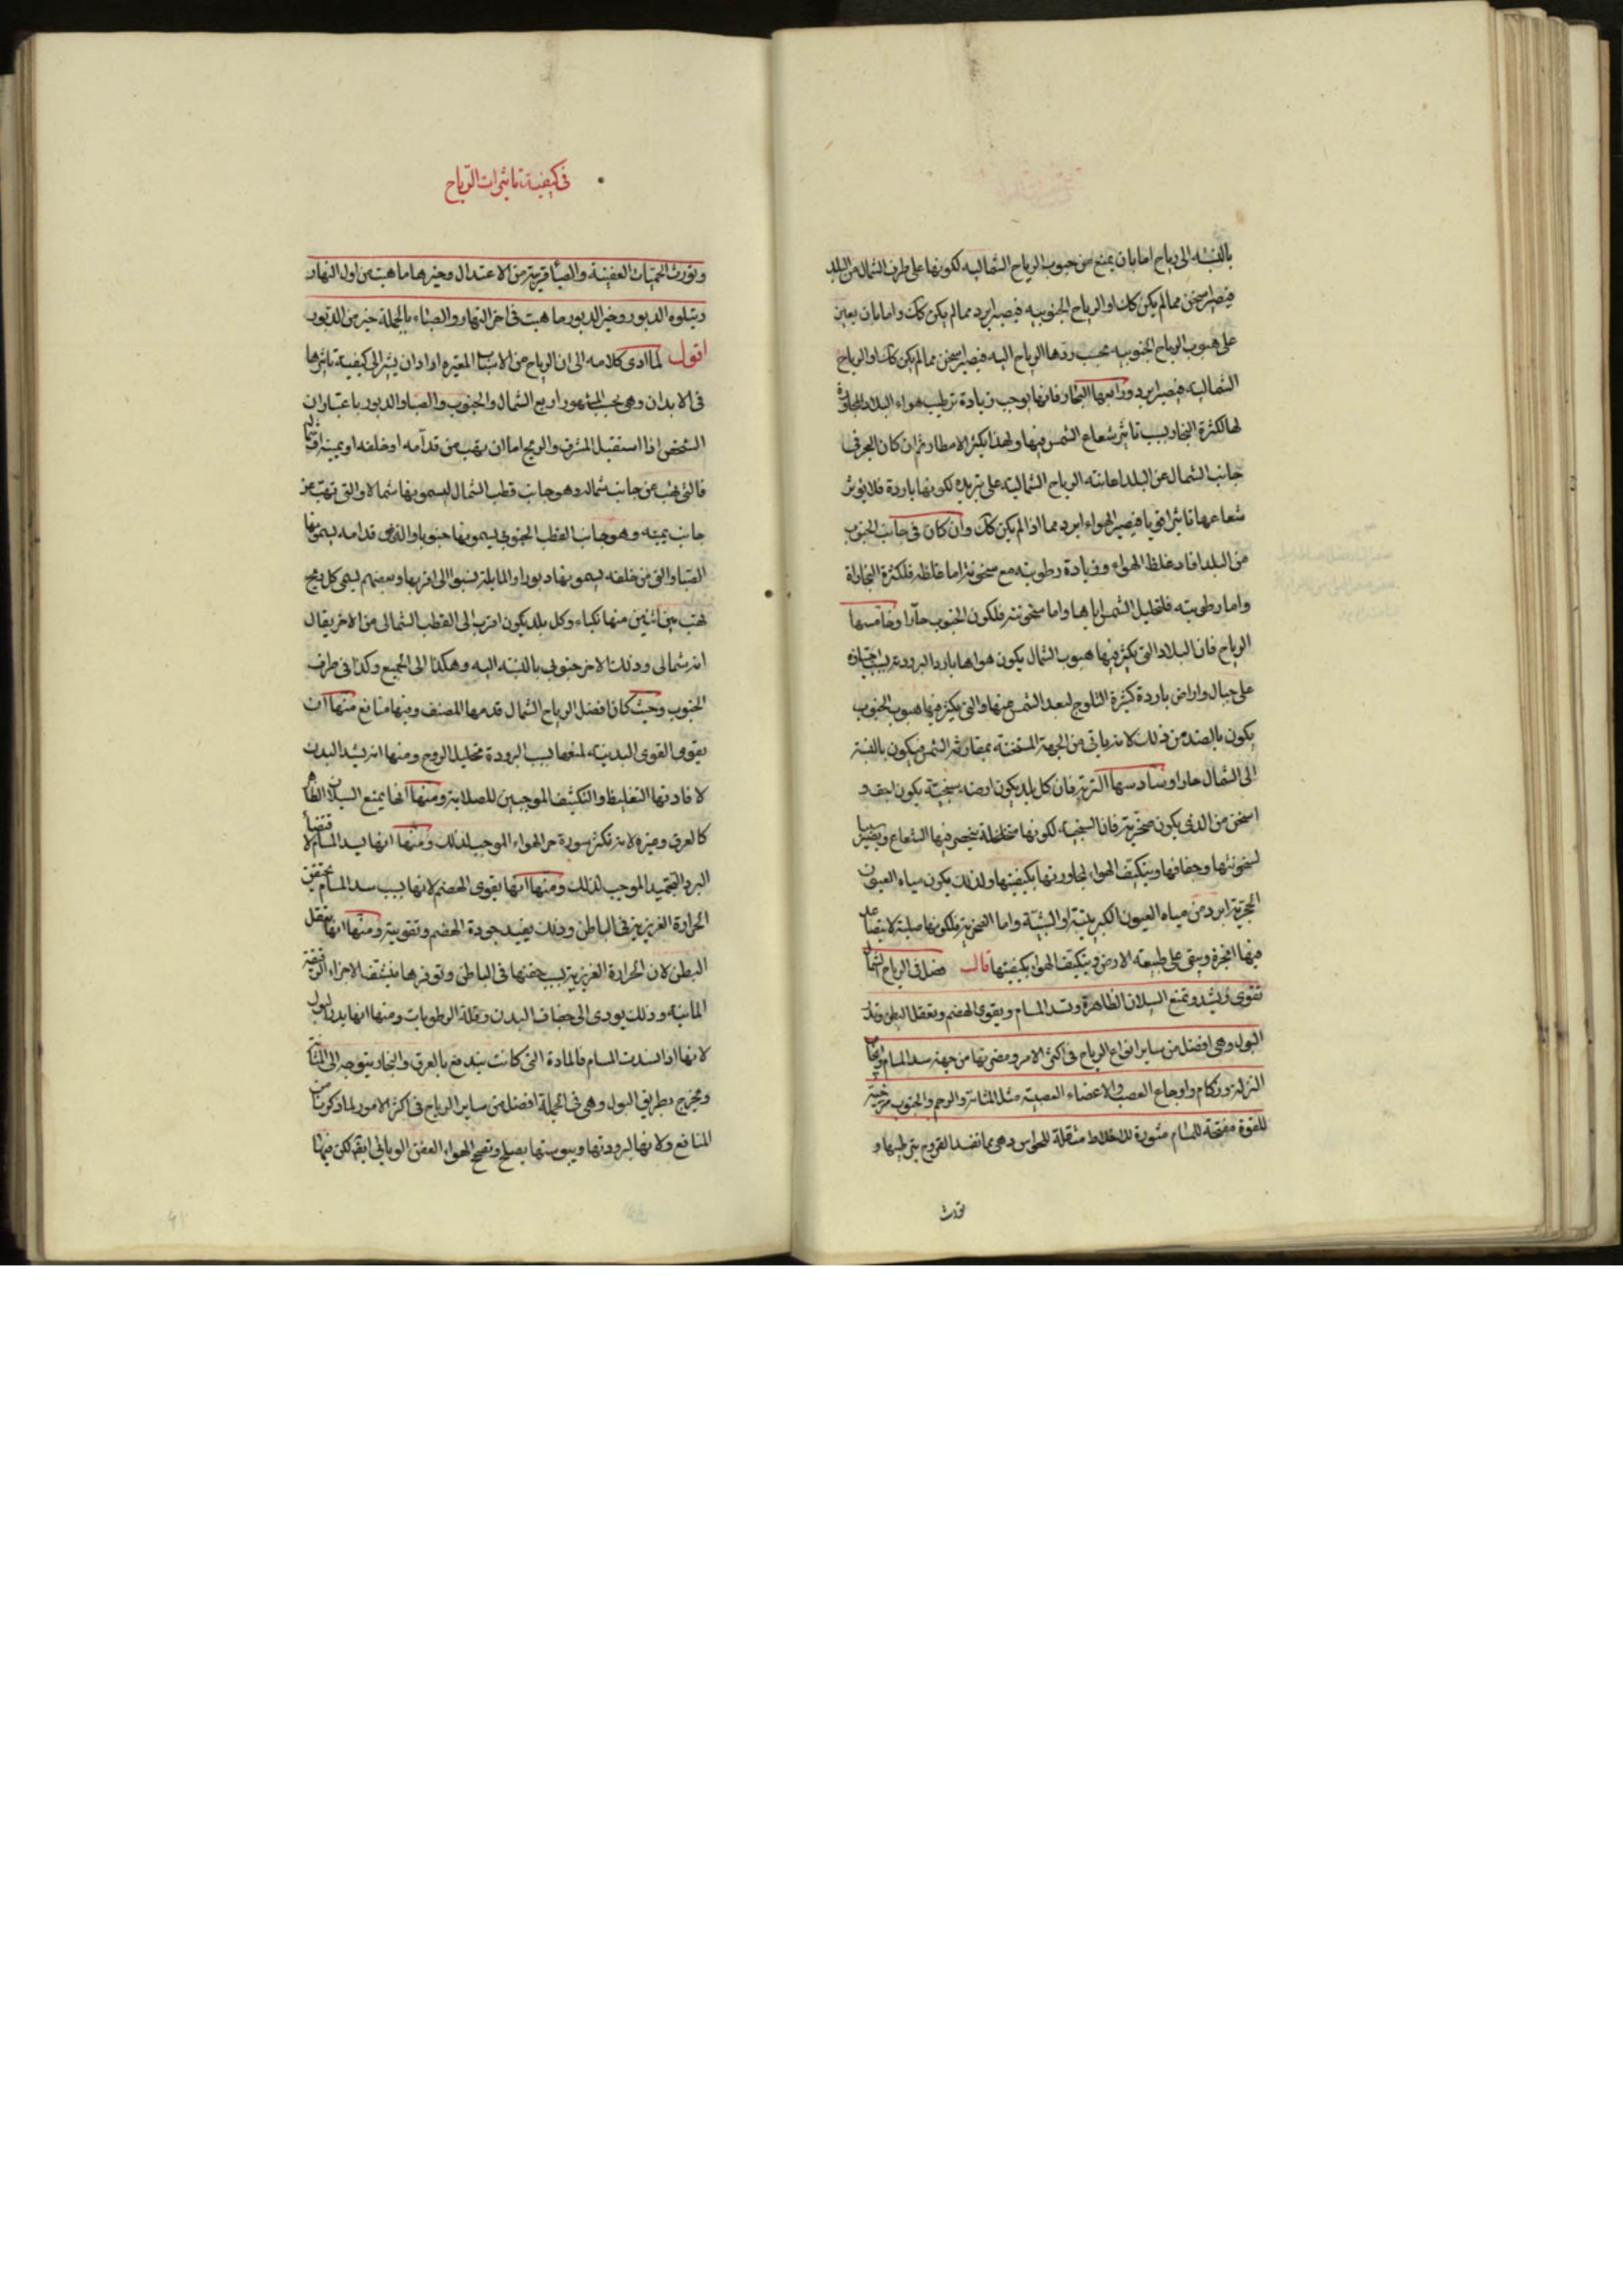 بالنسبة الى رياح اما بان يمنع من هبوب الرياح الشمالية لكونها على طرف الشمال من البلد
فيصير اسخن مما لم يكن كك او الرياح الجنوبيه فيصير ابرد مما لم يكن كك واما بان يعين
على هبوب الرياح الجنوبيه بحسب ردها الرياح اليه فيصير اسخن مما لم يكن كك او الرياح
الشماليه فيصير ابرد ورابعها البحار فانها يوجب زيادة ترطيب هواء البلاد المجاورة
لها لكثرة البخار بسبب تاثير شعاع الشمس فيها ولهذا يكثر الامطار ثم ان كان البحر في
جانب الشمال عن البلد اعانته الرياح الشمالية على تبريده لكونها باردة فلا يوثر
شعاعها تاثيرا قويا فيصير الهواء ابرد مما اذا لم يكن كك وان كان في جانب الجنوب
من البلد افاد غلظ الهواء وزيادة رطوبته مع سخونته اما غلظه فلكثرة البخارات
واما رطوبته فلتحليل الشمس اياها واما سخونته فلكون الجنوب حارا وخامسها
الرياح فان البلاد التي يكثر فيها هبوب الشمال يكون هواها باردا لبروده بسبب اجتيازه
على جبال واراض باردة كثيرة الثلوج لبعد الشمس عنها والتي يكثر فيها هبوب الجنوب
يكون بالضد من ذلك لانه ياتي من الجهة المتسخنة بمقاربة الشمس فيكون بالنسبة
الى الشمال حارا وسادسها التربة فان كل بلد يكون ارضه سبخية يكون اجف و
اسخن من الذي يكون صخرية فان السبخيه لكونها متخلخلة ينحصر فيها الشعاع ويصير سببا
لسخونتها وجفافها ويتكيف الهواء لمجاورتها بكيفيتها ولذلك يكون مياه العيون
الحجرية ابرد من مياه العيون الكبريتية والشبيّة واما الصخرية فلكونها صلبة لا يتصاعد
فيها ابخرة ويبقى على طبيعة الارض ويتكيف الهواء بكيفيتها قال فصل في الرياح الشمال
تقوى ويشد ويمنع السيلان الظاهرة وتسد المسام ويقوى الهضم وتعقل البطن وتدر
البول وهى افضل من ساير انواع الرياح في اكثر الامر ومضرتها من جهة سد المسام
النزلة وزكام واوجاع العصب والاعضاء العصبية مثل المثانة والرحم والجنوب مرخية
للقوة مفتحة للمسام مثورة للاخلاط مثقلة للحواس وهى مما تفسد القروح بترطيبها و
تورث
في كيفية تاثيرات الرياح
وتورث الحميات العفينة والصبا قريبة من الاعتدال وخيرها ما هبت من اول النهار
ويتلوه الدبور وخير الدبور ما هبت في اخر النهار والصباء بالجملة خير من الدبور
اقول لما ادى كلامه الى ان الرياح من الاسباب المغيره اراد ان يشير الى كيفية تاثيرها
في الابدان وهى بحسب المشهور اربع الشمال والجنوب والصبا والدبور باعتبار ان
الشخص اذا استقبل المشرق والريح اما ان يهب من قدامه او خلفه او يمينه او شماله
فالتى تهب عن جانب شماله وهو جانب قطب الشمال ليسمونها شمالا والتى تهب عن
جانب يمينه وهو جانب القطب الجنوبي ليسمونها جنوبا والذي قدامه ليسمونها
الصبا والتى من خلفه ليسمونها دبورا والمايلة ينسبوا الى اقربها وبعضهم ليسمى كل ريح
تهب بين اثنين منها نكباء وكل بلد يكون اقرب الى القطب الشمالى من الاخر يقال
انه شمالى وذلك الاخر جنوبى بالنسبه اليه وهكذا الى الجميع وكذا في طرف
الجنوب وحيث كان افضل الرياح الشمال قدمها المصنف ومنها منافع منها ان
يقوى القوى البدنيه لمنعها بسبب البرودة تحليل الروح ومنها انه يشد البدن
لافادتها التغليظ والتكثيف الموجبين للصلابة ومنها انها يمنع السيلان الظاهر
كالعرق وغيره لانه تكثر سورة حر الهواء الموجب لذلك ومنها انها ليسد المسام لاقتضاء
البرد التجميد الموجب لذلك ومنها انها يقوى الهضم لانها بسبب سد المسام يحتقن
الحرارة الغريزية في الباطن وذلك يفيد جودة الهضم وتقويته ومنها انها يعقل
البطن لان الحرارة الغريزية بسبب حقنها في الباطن وتوفرها ينشف الاجزاء الرقيقة
المائية وذلك يودى الى جفاف البدن وقلة الرطوبات ومنها انها يدر البول
لانها اذا انسدت المسام فالمادة التى كانت يندفع بالعرق والبخار يتوجه الى المثانة
ويخرج بطريق البول وهى في الجملة افضل من ساير الرياح في اكثر الامور لما ذكرنا من
المنافع ولانها لبرودتها ويبوستها يصلح ويصحح الهواء العفن الوبائي ايضا لكن فيها